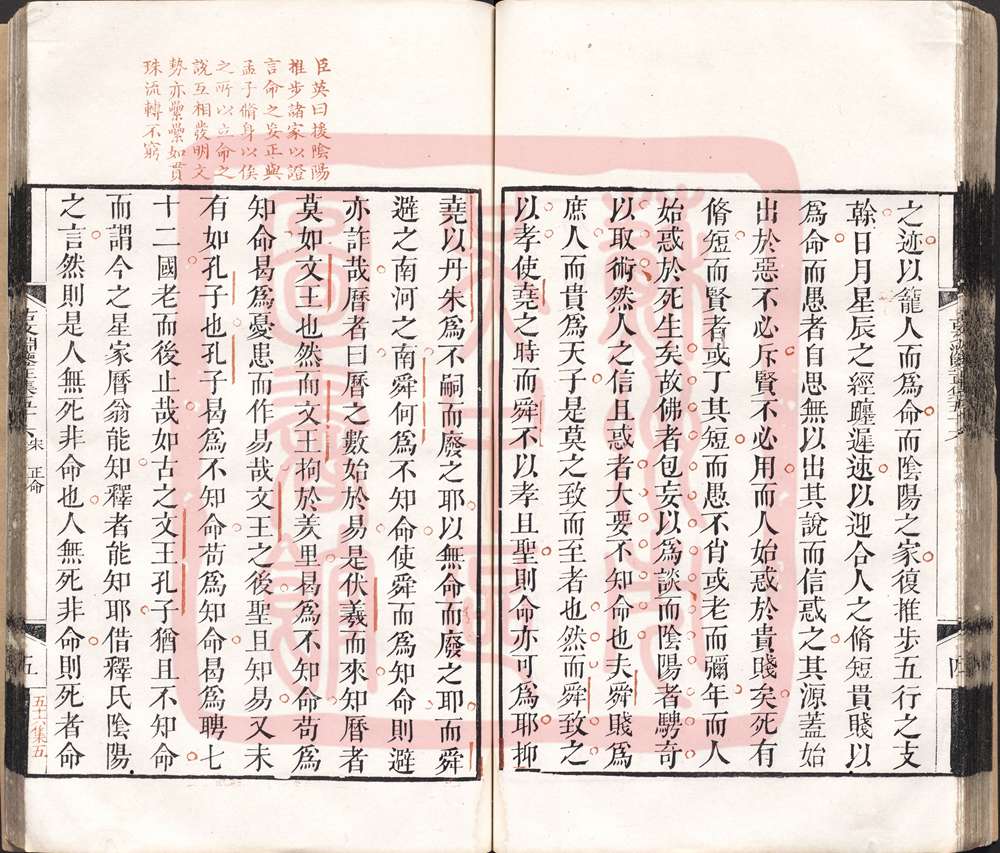 之迹以籠人而爲命而陰陽之家復推步五行之支
幹日月星辰之經躔遲速以迎合人之脩短貴賤以
爲命而愚者自思無以出其說而信惑之其源蓋始
出於惡不必斥賢不必用而人始惑於貴賤矣死有
脩短而賢者或丁其短而愚不肖或老而彌年而人
始惑於死生矣故佛者包妄以爲談而陰陽者騁奇
以取術然人之信且惑者大要不知命也夫舜賤爲
庶人而貴爲天子是莫之致而至者也然而舜致之
以孝使堯之時而舜不以孝且聖則命亦可爲耶抑
四
臣英曰援陰陽
推步諸家以證
言命之妄正與
孟子脩身以俟
之所以立命之
說互相發明文
勢亦纍纍如貫
珠流轉不窮
堯以丹朱爲不嗣而廢之耶以無命而廢之耶而舜
避之南河之南舜何爲不知命使舜而爲知命則避
亦詐哉曆者曰曆之數始於易是伏羲而來知曆者
莫如文王也然而文王拘於羑里曷爲不知命苟爲
知命曷爲憂患而作易哉文王之後聖且知易又未
有如孔子也孔子曷爲不知命苟爲知命曷爲聘七
十二國老而後止哉如古之文王孔子猶且不知命
而謂今之星家曆翁能知釋者能知耶借釋氏陰陽
之言然則是人無死非命也人無死非命則死者命
宋 正命
五
五十六集五